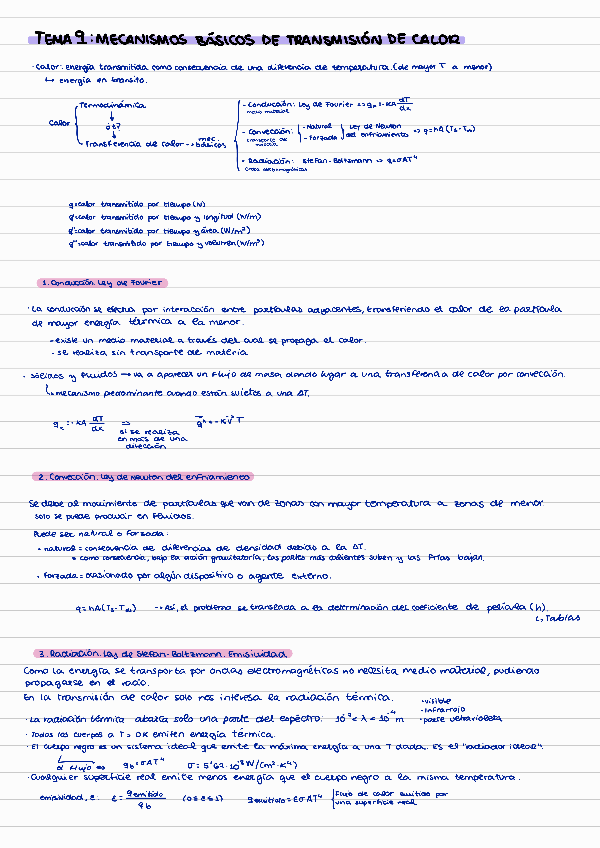 TEMA 9: MECANISMOS BÁSICOS DE TRANSMISIÓN DE CALOR
· Calor: energía transmitida como consecuencia de una diferencia de temperatura. (de mayor T a menor)
↳ energía en tránsito.
Calor
Termodinámica
¿t?
Transferencia de calor → mec. básicos
- Conducción: Ley de Fourier => qx = -KA dT/dx
medio material
- Convección: - Natural - Forzada Ley de Newton del enfriamiento => q=hA(Ts-T∞)
transporte de materia
- Radiación: Stefan-Boltzmann => q=σAT⁴
Ondas electromagnéticas
q=calor transmitido por tiempo (W)
q'=calor transmitido por tiempo y longitud (W/m)
q''=calor transmitido por tiempo y área (W/m²)
q'''=calor transmitido por tiempo y volumen (W/m³)
1. Conducción. Ley de Fourier
· La conducción se efectúa por interacción entre partículas adyacentes, transfiriendo el calor de la partícula
de mayor energía térmica a la menor.
- existe un medio material a través del cual se propaga el calor.
- se realiza sin transporte de materia
· Sólidos y fluidos → va a aparecer un flujo de masa dando lugar a una transferencia de calor por convección.
↳ mecanismo predominante cuando están sujetos a una ΔT.
qx = -KA dT/dx => q'' = -K∇T
si se realiza
en más de una
dirección
2. Convección. Ley de Newton del enfriamiento
Se debe al movimiento de partículas que van de zonas con mayor temperatura a zonas de menor
solo se puede producir en fluidos.
Puede ser natural o forzada:
• natural = consecuencia de diferencias de densidad debido a la ΔT.
• como consecuencia, bajo la acción gravitatoria, las partes más calientes suben y las frías bajan.
• Forzada = ocasionado por algún dispositivo o agente externo.
q=hA(Ts-T∞) → Así, el problema se translada a la determinación del coeficiente de película (h).
↳ Tablas
3. Radiación. Ley de Stefan-Boltzmann. Emisividad
Como la energía se transporta por ondas electromagnéticas no necesita medio material, pudiendo
propagarse en el vacío.
En la transmisión de calor solo nos interesa la radiación térmica.
· visible
· infrarrojo
· parte ultravioleta
· La radiación térmica abarca solo una parte del espectro:
· Todos los cuerpos a T > 0K emiten energía térmica.
· El cuerpo negro es un sistema ideal que emite la máxima energía a una T dada. Es el "radiador ideal".
↳ Flujo => qb=σAT⁴ σ=5'67·10⁻⁸ W/(m²·K⁴)
· Cualquier superficie real emite menos energía que el cuerpo negro a la misma temperatura.
emisividad, ε. ε = q emitido / qb (0≤ε≤1) q emitido = εσAT⁴ Flujo de calor emitido por
una superficie real